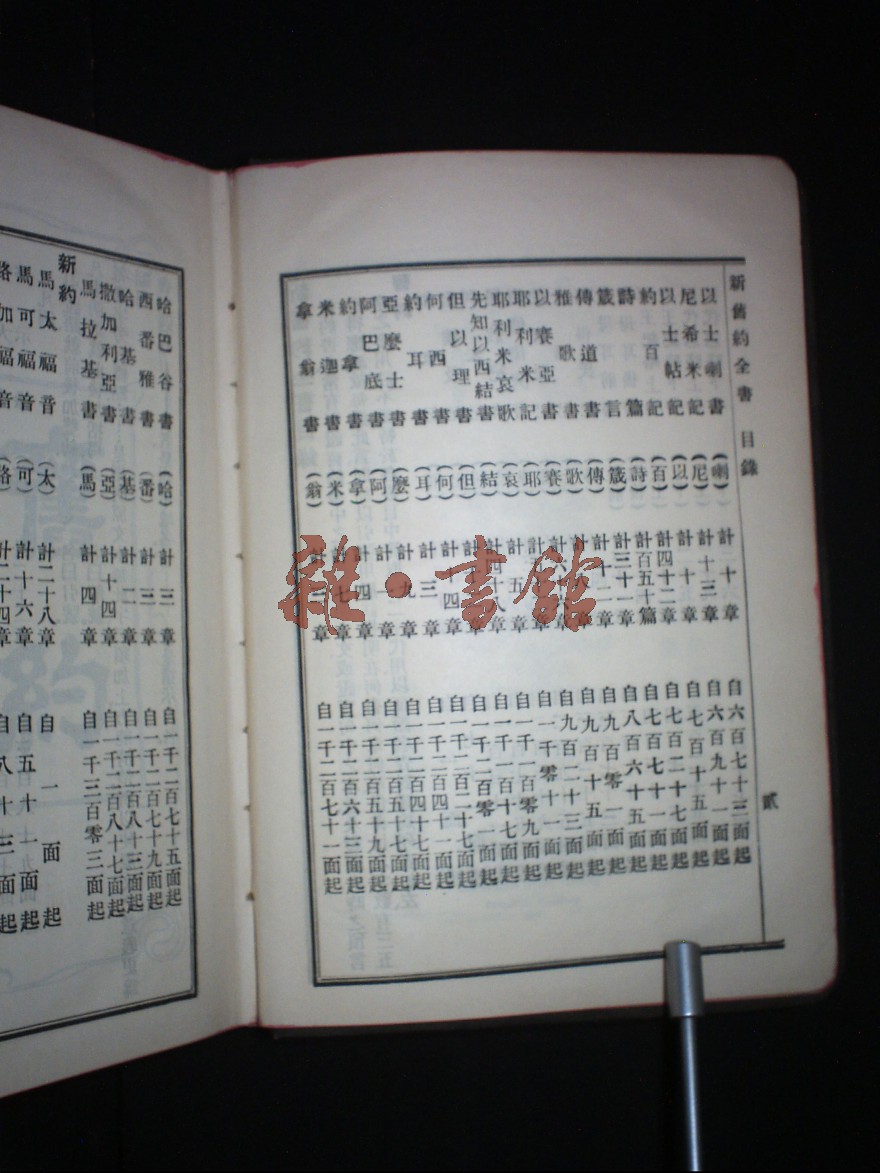 新舊約全書 目錄 貳
以士喇書 (喇) 計十章 自六百七十三面起
尼希米記 (尼) 計十三章 自六百九十一面起
以士帖記 (以) 計十章 自七百十五面起
約百記 (百) 計四十二章 自七百二十七面起
詩篇 (詩) 計百五十篇 自七百七十一面起
箴言 (箴) 計三十一章 自八百六十五面起
傳道書 (傳) 計十二章 自九百零一面起
雅歌書 (歌) 計八章 自九百十五面起
以賽亞書 (賽) 計六十六章 自九百二十三面起
耶利米記 (耶) 計章 自一千零十一面起
耶利米哀歌 (哀) 計五章 自一千一百零九面起
先知以西結書 (結) 計四十八章 自一千一百十七面起
但以理書 (但) 計章 自一千二百零一面起
何西書 (何) 計十四章 自一千二百二十七面起
約耳書 (耳) 計三章 自一千二百四十一面起
亞麼士書 (麼) 計九章 自一千二百四十七面起
阿巴底書 (阿) 計一章 自一千二百五十七面起
約拿書 (拿) 計四章 自一千二百五十九面起
米迦書 (米) 計七章 自一千二百六十三面起
拿翁書 (翁) 計三章 自一千二百七十一面起
哈巴谷書 (哈) 計三章 自一千二百七十五面起
西番雅書 (番) 計三章 自一千二百七十九面起
哈基書 (基) 計二章 自一千二百八十三面起
撒加利亞書 (亞) 計十四章 自一千二百八十七面起
馬拉基書 (馬) 計四章 自一千三百零三面起
新約
馬太福音 (太) 計二十八章 自一面起
馬可福音 (可) 計十六章 自五十一面起
路加福音 (路) 計二十四章 自八十三面起
雜·書館